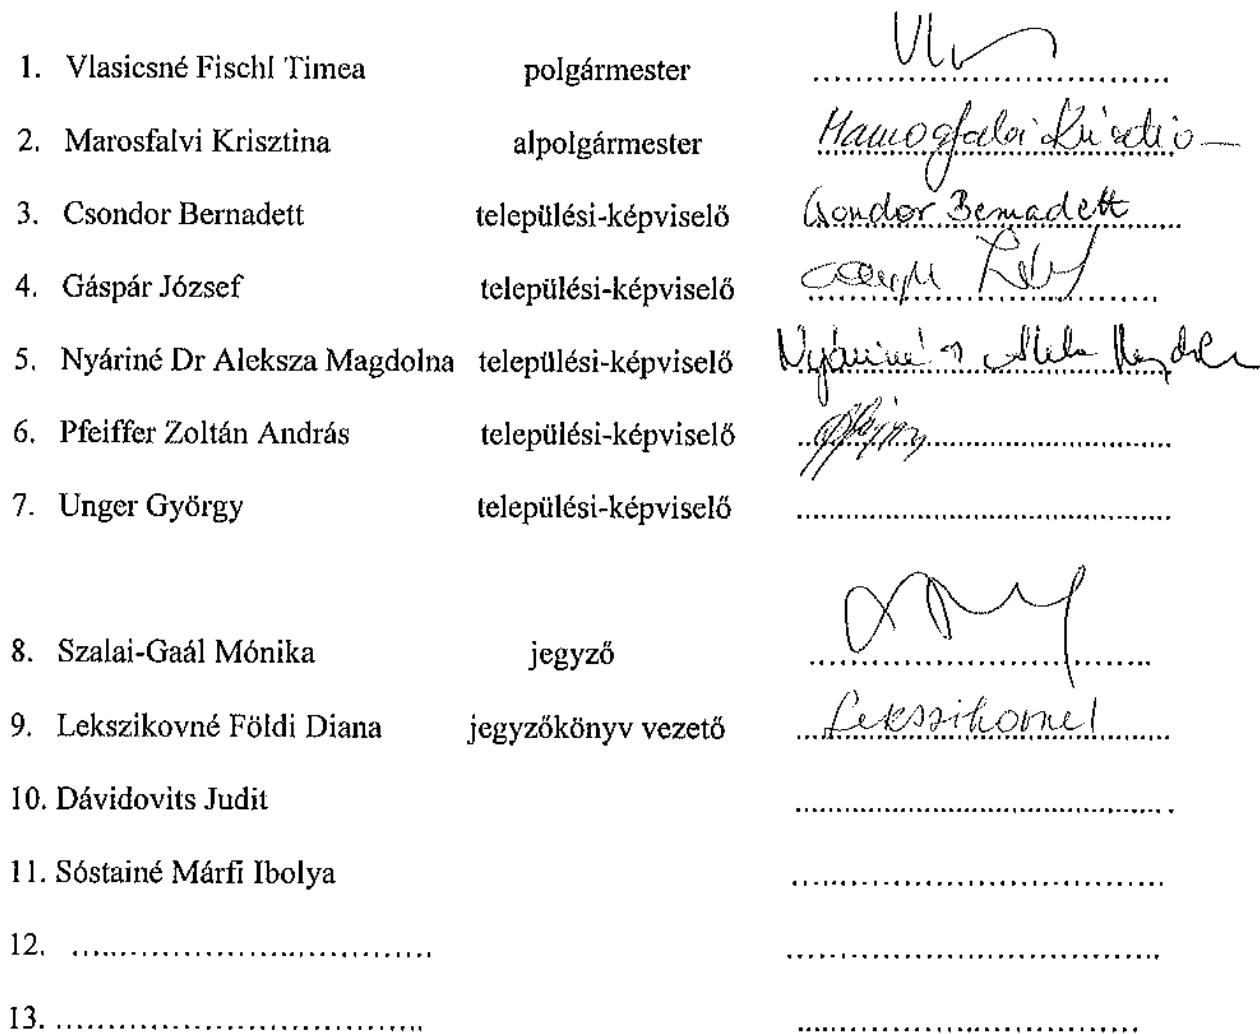 1. Vlasicsné Fischl Timea polgármester
2. Marosfalvi Krisztina alpolgármester
3. Csondor Bernadett települési-képviselő Csondor Bernadett
4. Gáspár József települési-képviselő
5. Nyáriné Dr Aleksza Magdolna települési-képviselő Nyáriné
6. Pfeiffer Zoltán András települési-képviselő
7. Unger György települési-képviselő
8. Szalai-Gaál Mónika jegyző
9. Lekszikovné Földi Diana jegyzőkönyv vezető Lekszikovné
10. Dávidovits Judit
11. Sóstainé Márfi Ibolya
12.
13.